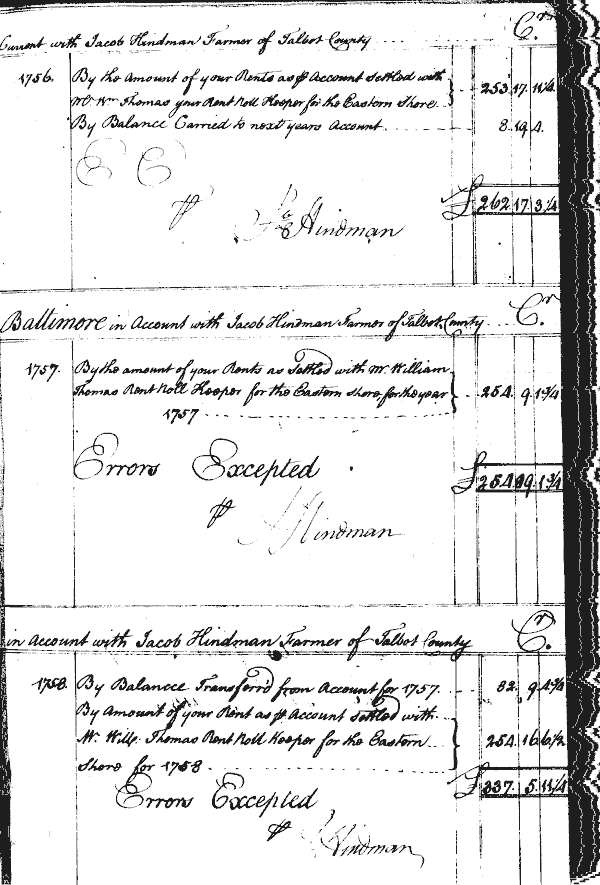 Current with Jacob Hindman Farmer of Talbot County Cr
1756. By the Amount of your Rents as p Account Settled with
Mr Wm Thomas your Rent Roll Keeper for the Eastern Shore } 253. 17. 11¼
By Balance Carried to next years Account 8. 19 4.
E E
£ 262 17 3¼
p Ja Hindman
Baltimore in Account with Jacob Hindman Farmer of Talbot County Cr
1757. By the amount of your Rents as Settled with Mr. William
Thomas Rent Roll Keeper for the Eastern Shore for the year } 254. 9. 1¾
1757
Errors Excepted
£ 254 9 1¾
p J Hindman
in Account with Jacob Hindman Farmer of Talbot County Cr
1758. By Balancce Transferr'd from Account for 1757. 82. 9. 4¾
By Amount of your Rent as p Account Settled with
Mr. Willm. Thomas Rent Roll Keeper for the Eastern } 254. 16. 6½
Shore for 1758
£ 337. 5. 11¼
Errors Excepted
p J Hindman